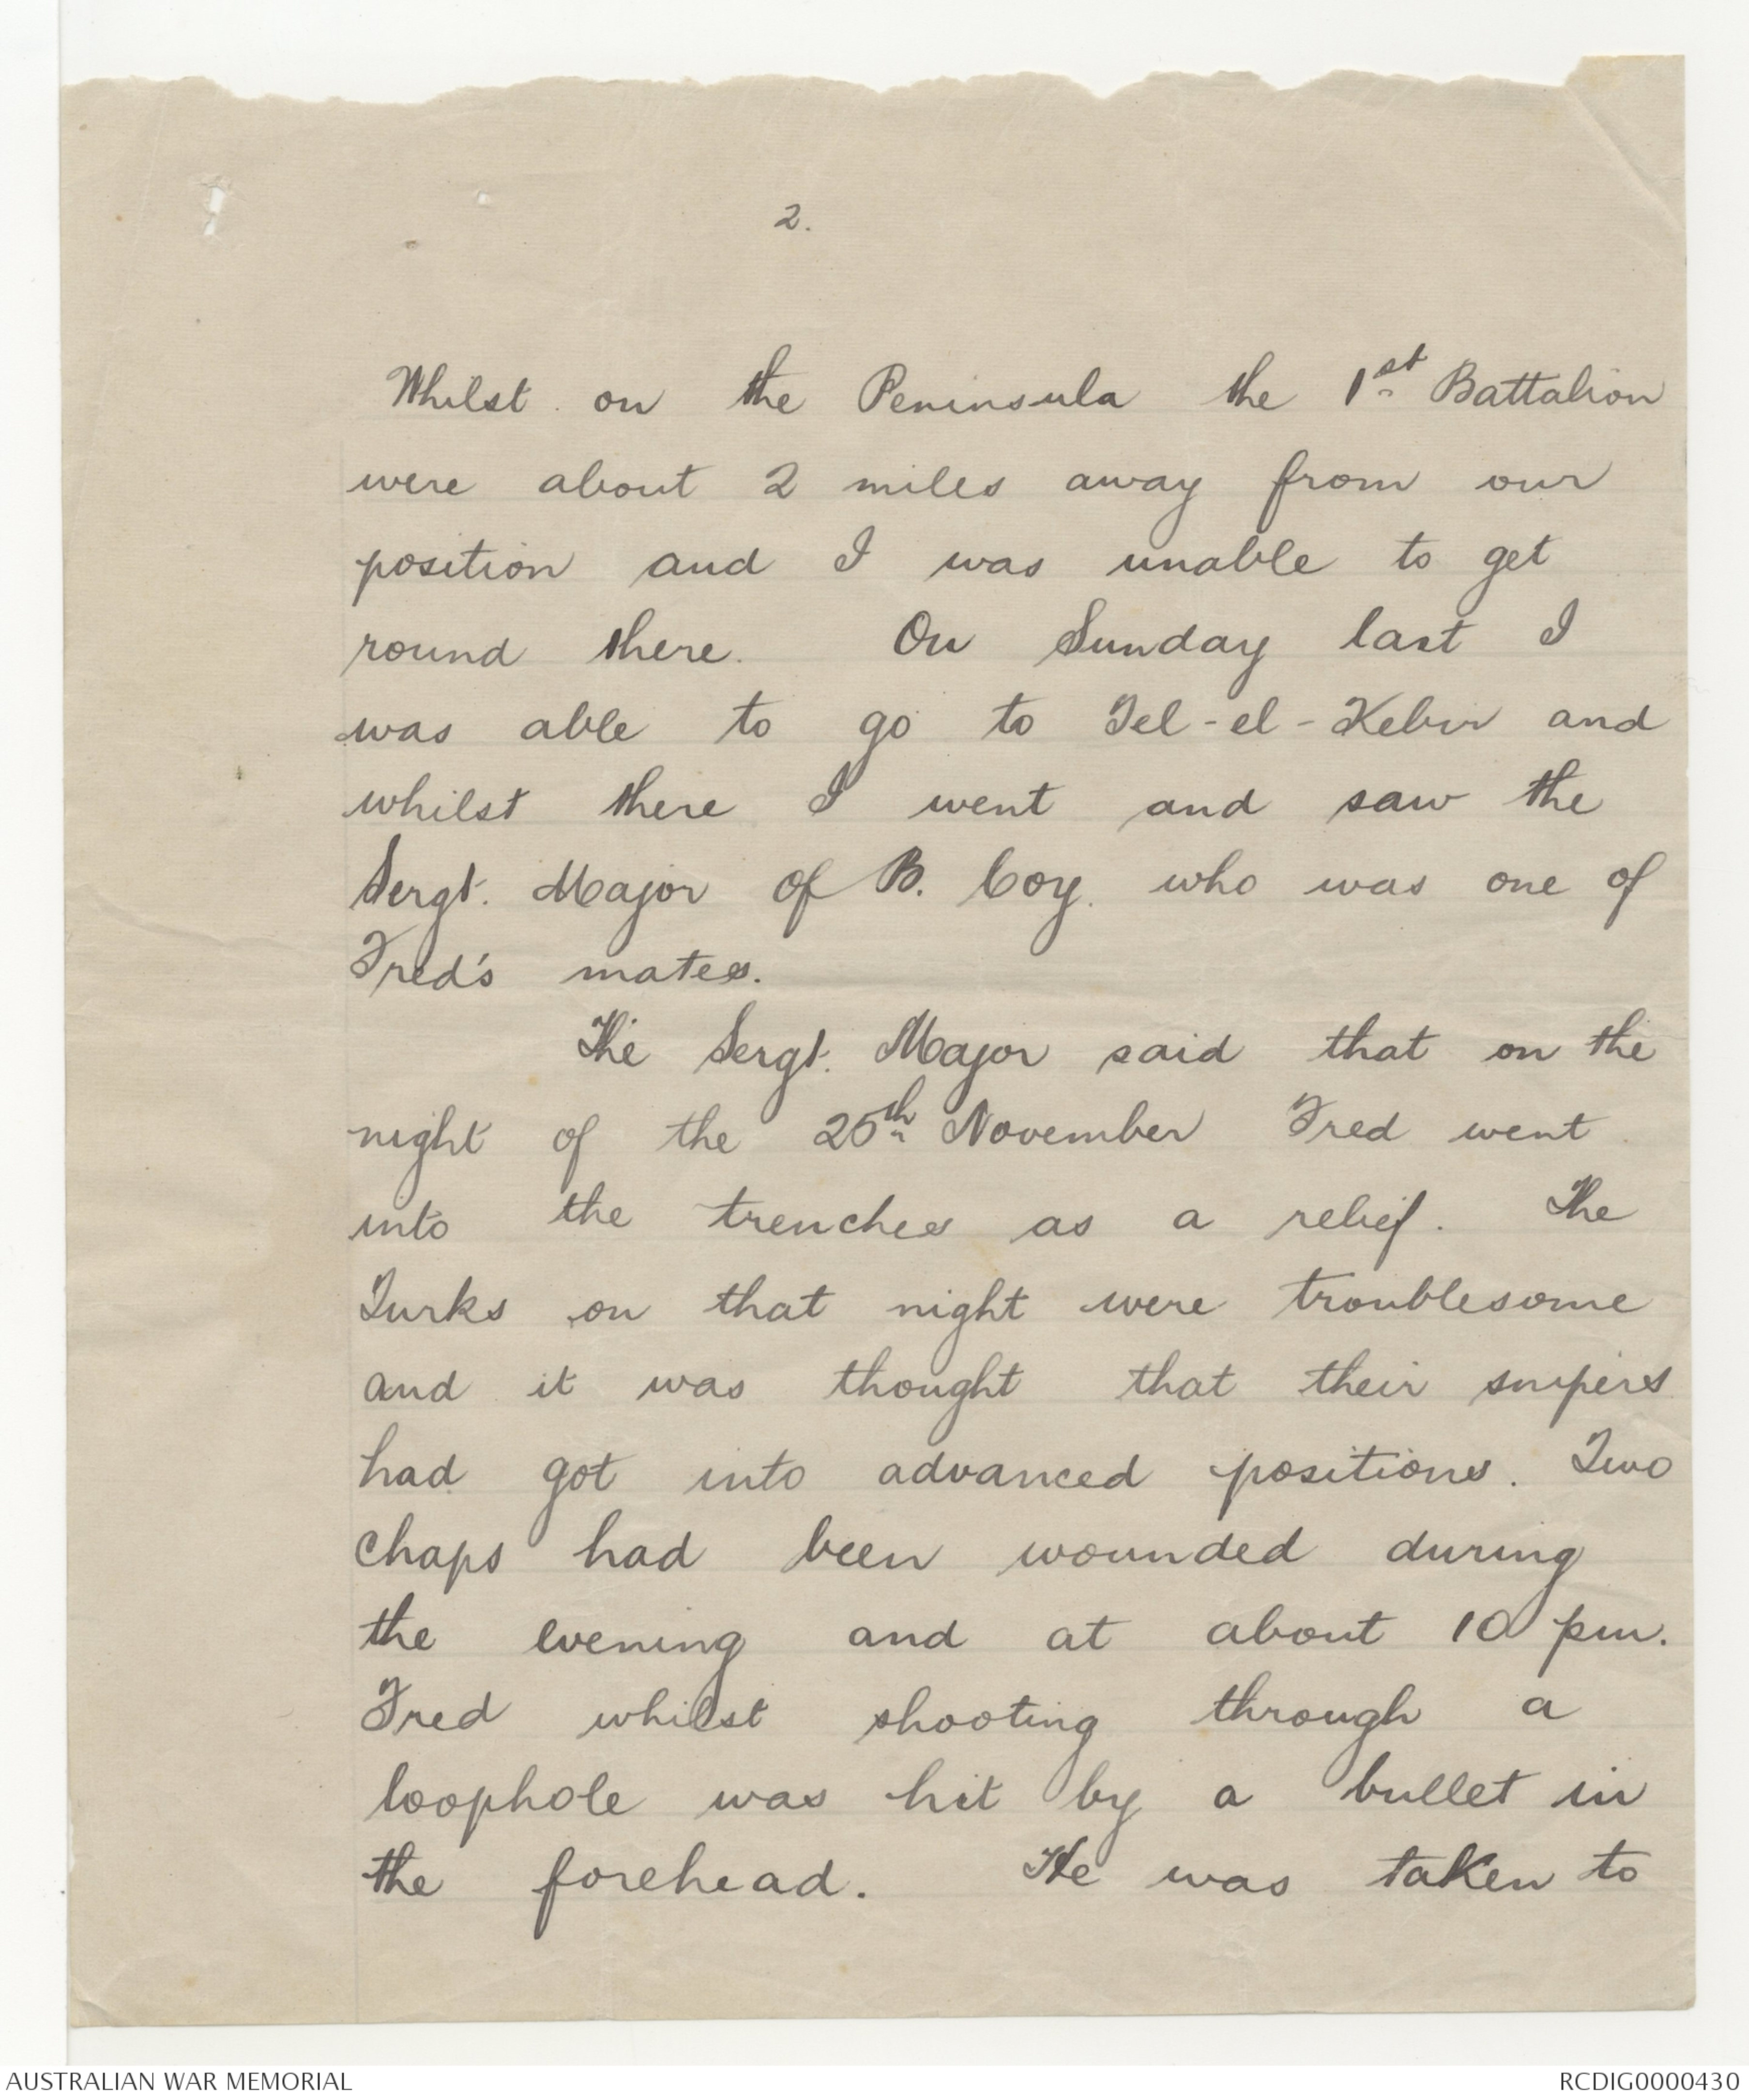 2.
Whilst on the Peninsula the 1st Battalion
were about 2 miles away from our
position and I was unable to get
round there. On Sunday last I
was able to go to Tel-el-Kebir and
whilst there I went and saw the
Sergt. Major of B. Coy. who was one of
Fred's mates.
The Sergt. Major said that on the
night of the 25th November Fred went
into the trenches as a relief. The
Turks on that night were troublesome
and it was thought that their snipers
had got into advanced positions. Two
chaps had been wounded during
the evening and at about 10 pm.
Fred whilst shooting through a
loophole was hit by a bullet in
the forehead. He was taken to
AUSTRALIAN WAR MEMORIAL
RCDIG0000430